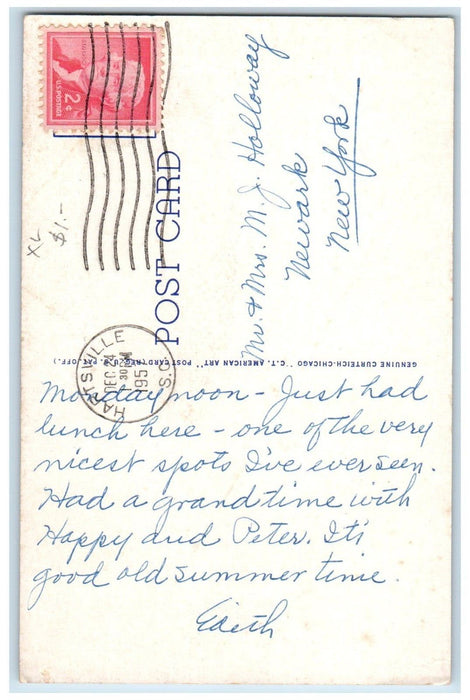 U.S. POSTAGE
2¢
XL
$1.-
POST CARD
Mr. & Mrs. M. J. Holloway
Newark
New York
GENUINE CURTEICH-CHICAGO "C.T. AMERICAN ART" POST CARD (REG. U.S. PAT. OFF.)
HARTSVILLE
DEC 24
1 30 PM
195
S.C.
Monday noon - Just had
lunch here - one of the very
nicest spots I've ever seen.
Had a grand time with
Happy and Peter. It's
good old summer time.
Edith